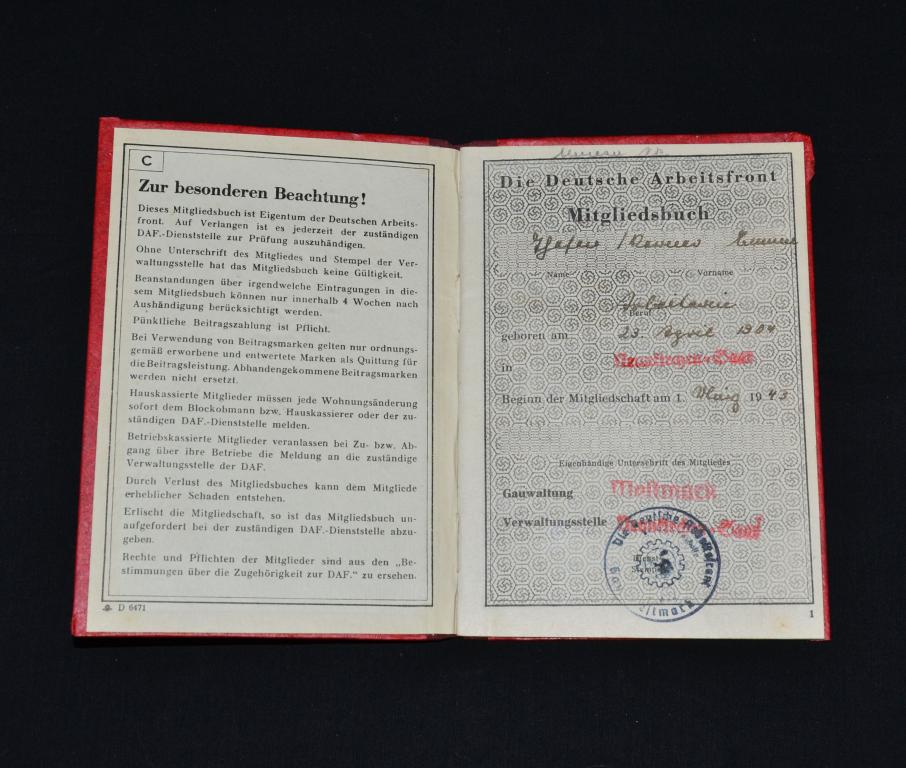 C
Zur besonderen Beachtung!
Dieses Mitgliedsbuch ist Eigentum der Deutschen Arbeits-
front. Auf Verlangen ist es jederzeit der zuständigen
DAF.-Dienststelle zur Prüfung auszuhändigen.
Ohne Unterschrift des Mitgliedes und Stempel der Ver-
waltungsstelle hat das Mitgliedsbuch keine Gültigkeit.
Beanstandungen über irgendwelche Eintragungen in die-
sem Mitgliedsbuch können nur innerhalb 4 Wochen nach
Aushändigung berücksichtigt werden.
Pünktliche Beitragszahlung ist Pflicht.
Bei Verwendung von Beitragsmarken gelten nur ordnungs-
gemäß erworbene und entwertete Marken als Quittung für
die Beitragsleistung. Abhandengekommene Beitragsmarken
werden nicht ersetzt.
Hauskassierte Mitglieder müssen jede Wohnungsänderung
sofort dem Blockobmann bzw. Hauskassierer oder der zu-
ständigen DAF.-Dienststelle melden.
Betriebskassierte Mitglieder veranlassen bei Zu- bzw. Ab-
gang über ihre Betriebe die Meldung an die zuständige
Verwaltungsstelle der DAF.
Durch Verlust des Mitgliedsbuches kann dem Mitgliede
erheblicher Schaden entstehen.
Erlischt die Mitgliedschaft, so ist das Mitgliedsbuch un-
aufgefordert bei der zuständigen DAF.-Dienststelle abzu-
geben.
Rechte und Pflichten der Mitglieder sind aus den „Be-
stimmungen über die Zugehörigkeit zur DAF.“ zu ersehen.
D 6471
Die Deutsche Arbeitsfront
Mitgliedsbuch
Name Vorname
Beruf
geboren am 23. April 1904
in
Beginn der Mitgliedschaft am 1. März 1943
Eigenhändige Unterschrift des Mitgliedes
Gauwaltung Westmark
Verwaltungsstelle
Die Deutsche Arbeitsfront
Dienst-
Stempel
Gau Westmark
1